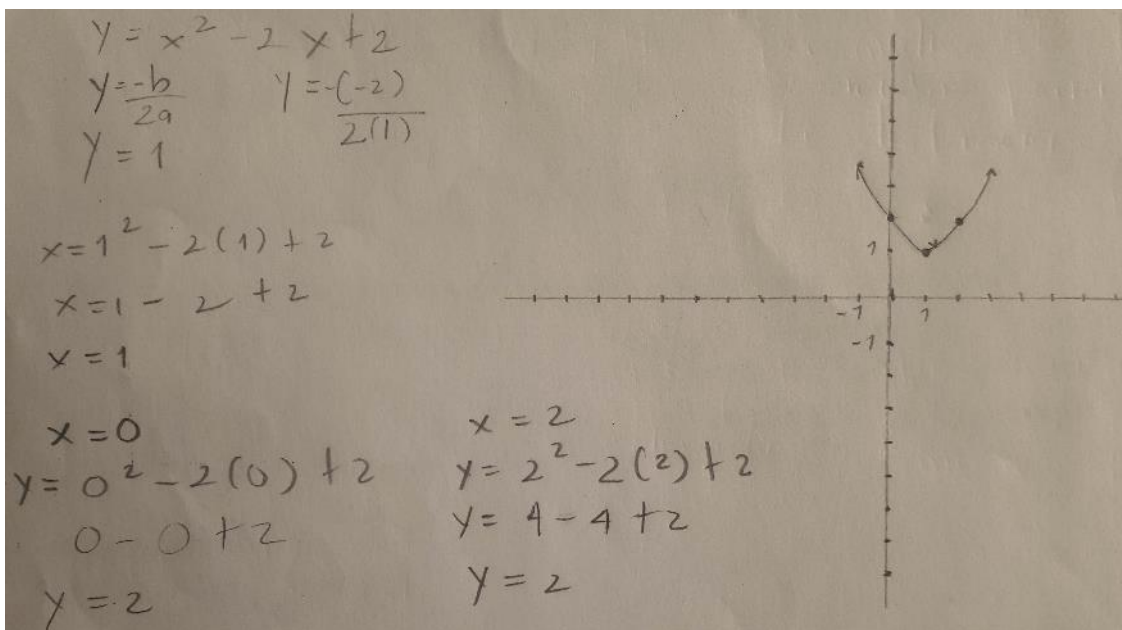 y = x² - 2x + 2
y = -b/2a    y = -(-2)/2(1)
y = 1
x = 1² - 2(1) + 2
x = 1 - 2 + 2
x = 1
x = 0
y = 0² - 2(0) + 2
0 - 0 + 2
y = 2
x = 2
y = 2² - 2(2) + 2
y = 4 - 4 + 2
y = 2
1
-1 1
-1